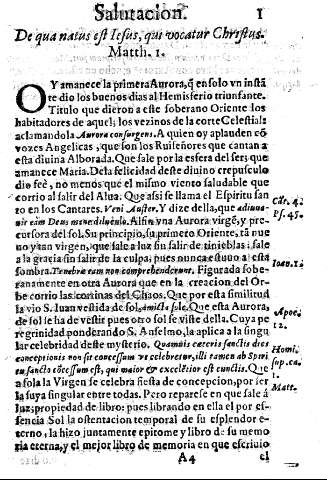 Salutacion. 1
De qua natus est Iesus, qui vocatur Christus.
Matth. 1.
OY amanece la primera Aurora, q̃ en solo vn instã
te dio los buenos dias al Hemisferio triunfante.
Titulo que dieron a este soberano Oriente los
habitadores de aquel; los vezinos de la corte Celestial:
aclamandola Aurora consurgens. A quien oy aplauden cõ
vozes Angelicas, que son los Ruiseñores que cantan a
esta diuina Alborada. Que sale por la esfera del ser; que
amanece Maria. De la felicidad deste diuino crepusculo
dio feè, no menos que el mismo viento saludable que
corrio al salir del Alua. Que assi se llama el Espiritu san
to en los Cantares. Veni Auster. Y dize della, que
eam Deus mane diluculo. Al fin vna Aurora virgẽ, y pre-
cursora del sol. Su principio, su primero Oriente, tã nue
uo y tan virgen, que sale a luz sin salir de tinieblas; sale
a la gracia sin salir de la culpa, pues nunca estuuo a essa
sombra. Tenebræ eam non comprehenderunt. Figurada sobe-
ranamente en otra Aurora que en la creacion del Or-
be corrio las cortinas del Chaos. Que por esta similitud
la vio S. Iuan vestida de sol, amicta sole. Que esta Aurora
de sol le ha de vestir pues otro sol se viste della. Cuya pe
regrinidad ponderando S. Anselmo, la aplica a la singu
lar celebridad deste mysterio. Quamuis cæteris sanctis dies
conceptionis non sit concessum vt celebretur, illi tamen ab Spiri
tu sancto cõcessum est, qui maior & excelẽtior est cunctis. Que
a sola la Virgen se celebra fiesta de concepcion, por ser
la suya singular entre todas. Pero reparese en que sale á
luz; propiedad de libro: pues librando en ella el por es-
sencia Sol la ostentacion temporal de su esplendor e-
terno, la hizo juntamente epitome y libro de su memo
ria eterna, y el mejor libro de memoria en que escriuio
A4 el
Cãt. 4.
Ps. 45.
Ioan. 1.
Apoc.
12.
Homi.
sup. ca.
1.
Matt.